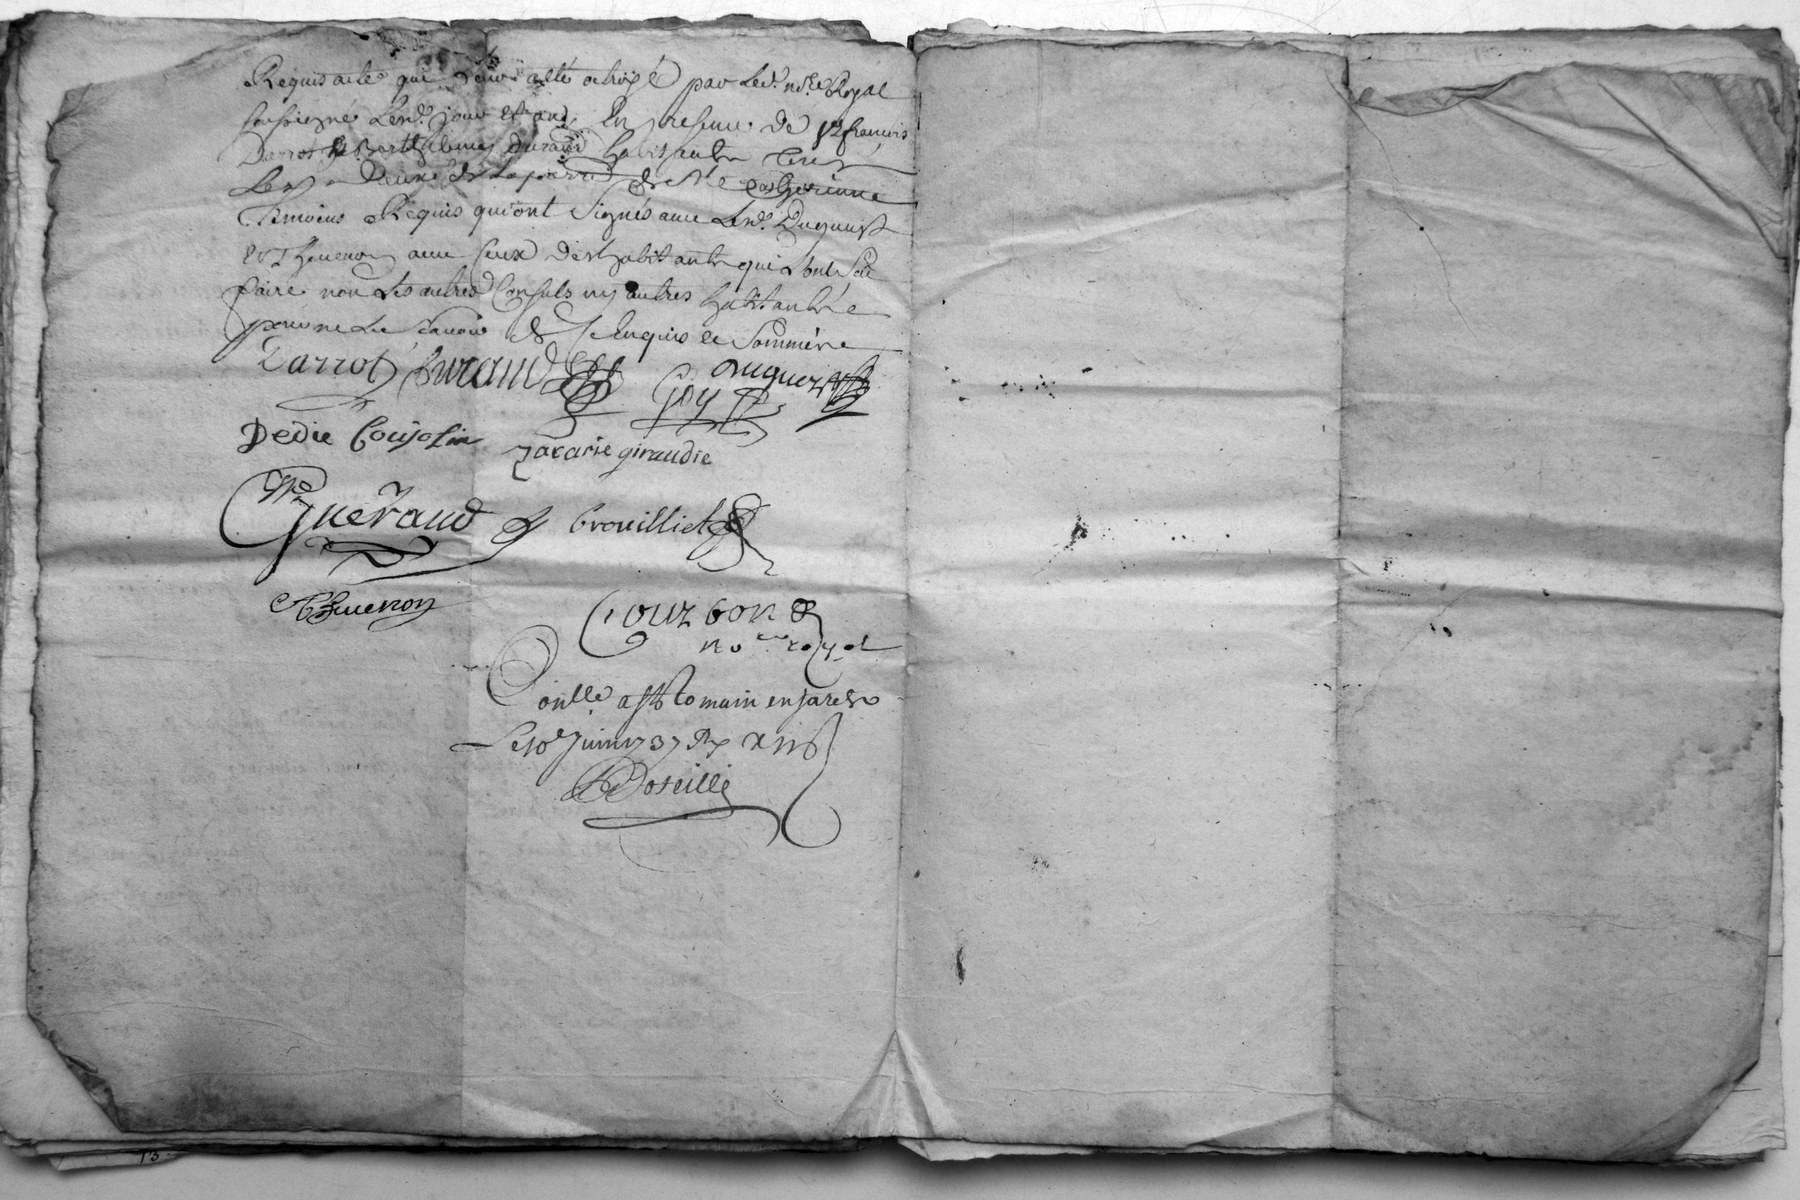 Requis acte qui leur a esté octroyé par led. no.re Royal
soussigné les d. jour et an, En presence de sr francois
Darrot & Barthelemy Durand habitants
de ste Catherinne
Temoins Requis qui ont signés avec led. Duguest
et Thevenon avec ceux des habitants qui l'ont sceu
faire non les autres Consuls ny autres habitants
pour ne le scavoir de ce Enquis et Sommés
Darrot Durand Duguest
Goy
Dedie Coujolin zacarie giraudie
Gueraud Crouilliet
Thevenon
Courbon
no.re royal
Conlle a st Romain en jarest
Le 10e Juin 1737 Rx
Doseille
13